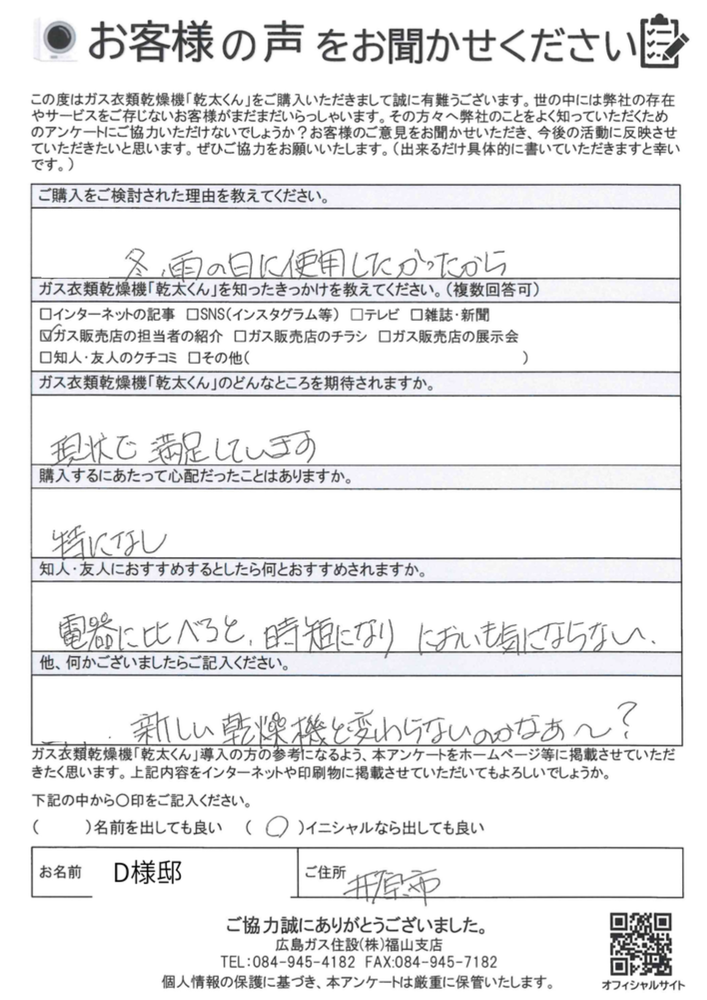 お客様の声をお聞かせください
この度はガス衣類乾燥機「乾太くん」をご購入いただきまして誠に有難うございます。世の中には弊社の存在
やサービスをご存じないお客様がまだまだいらっしゃいます。その方々へ弊社のことをよく知っていただくため
のアンケートにご協力いただけないでしょうか？お客様のご意見をお聞かせいただき、今後の活動に反映させ
ていただきたいと思います。ぜひご協力をお願いいたします。（出来るだけ具体的に書いていただきますと幸い
です。）
ご購入をご検討された理由を教えてください。
冬、雨の日に使用したかったから
ガス衣類乾燥機「乾太くん」を知ったきっかけを教えてください。（複数回答可）
□インターネットの記事 □SNS（インスタグラム等） □テレビ □雑誌・新聞
☑ガス販売店の担当者の紹介 □ガス販売店のチラシ □ガス販売店の展示会
□知人・友人のクチコミ □その他（ ）
ガス衣類乾燥機「乾太くん」のどんなところを期待されますか。
現状で満足しています
購入するにあたって心配だったことはありますか。
特になし
知人・友人におすすめするとしたら何とおすすめされますか。
電器に比べると、時短になり においも気にならない〜、
他、何かございましたらご記入ください。
新しい乾燥機と変わらないのかなぁ〜？
ガス衣類乾燥機「乾太くん」導入の方の参考になるよう、本アンケートをホームページ等に掲載させていただ
きたく思います。上記内容をインターネットや印刷物に掲載させていただいてもよろしいでしょうか。
下記の中から〇印をご記入ください。
（ ）名前を出しても良い （ 〇 ）イニシャルなら出しても良い
お名前 D様邸 ご住所 井原市
ご協力誠にありがとうございました。
広島ガス住設（株）福山支店
TEL:084-945-4182 FAX:084-945-7182
個人情報の保護に基づき、本アンケートは厳重に保管いたします。
オフィシャルサイト